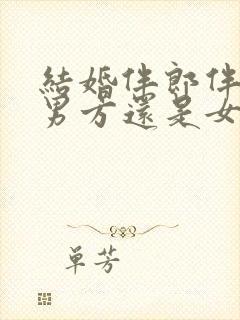 結婚伴郎伴
男方還是女
单芳